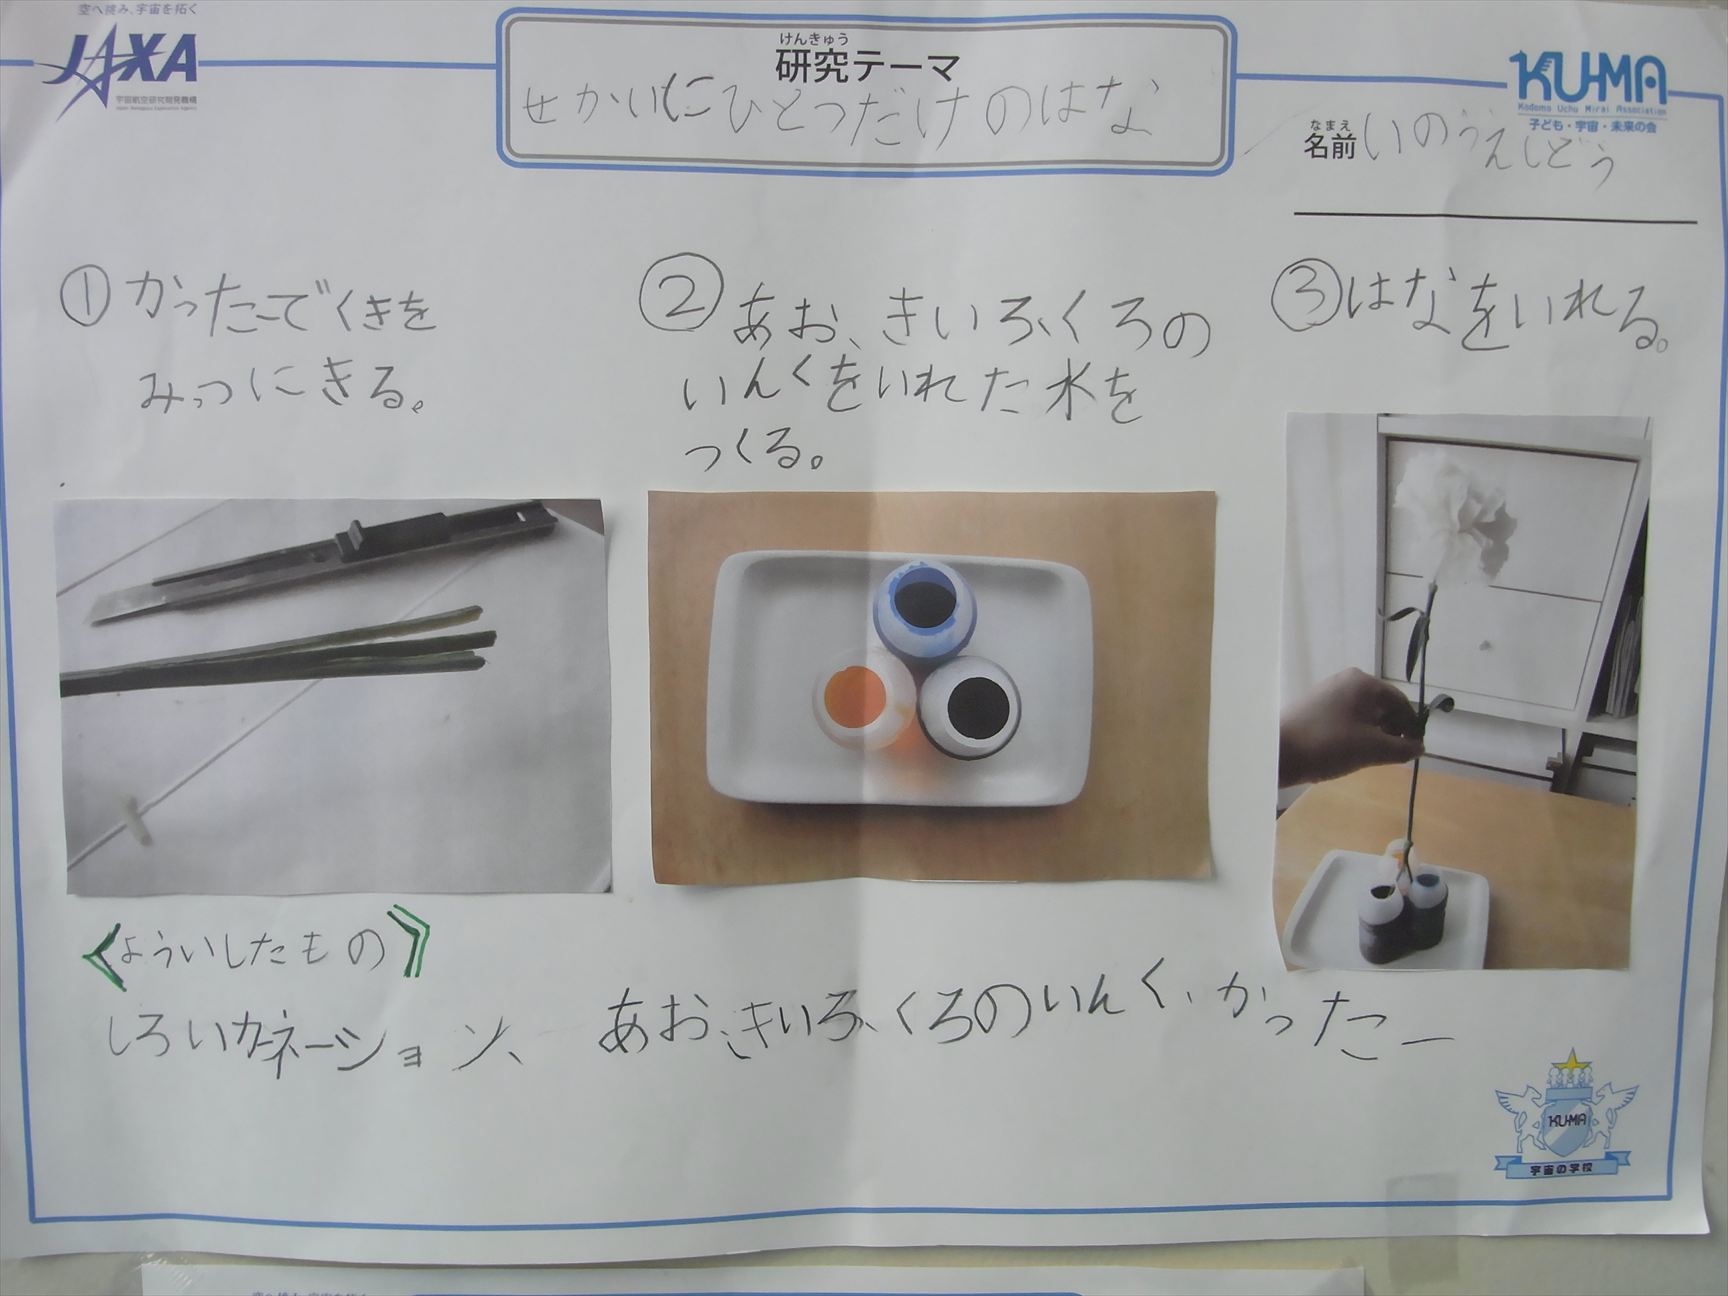 空へ挑み、宇宙を拓く
JAXA
宇宙航空研究開発機構
Japan Aerospace Exploration Agency
けんきゅう
研究テーマ
せかいにひとつだけのはな
KU-MA
Kodomo Uchu Mirai Association
子ども・宇宙・未来の会
なまえ
名前 いのうえしどう
①かったーでくきを
みっつにきる。
②あお、きいろ、くろの
いんくをいれた水を
つくる。
③はなをいれる。
《よういしたもの》
しろいカーネーション、あお、きいろ、くろのいんく、かったー
KU-MA
宇宙の学校